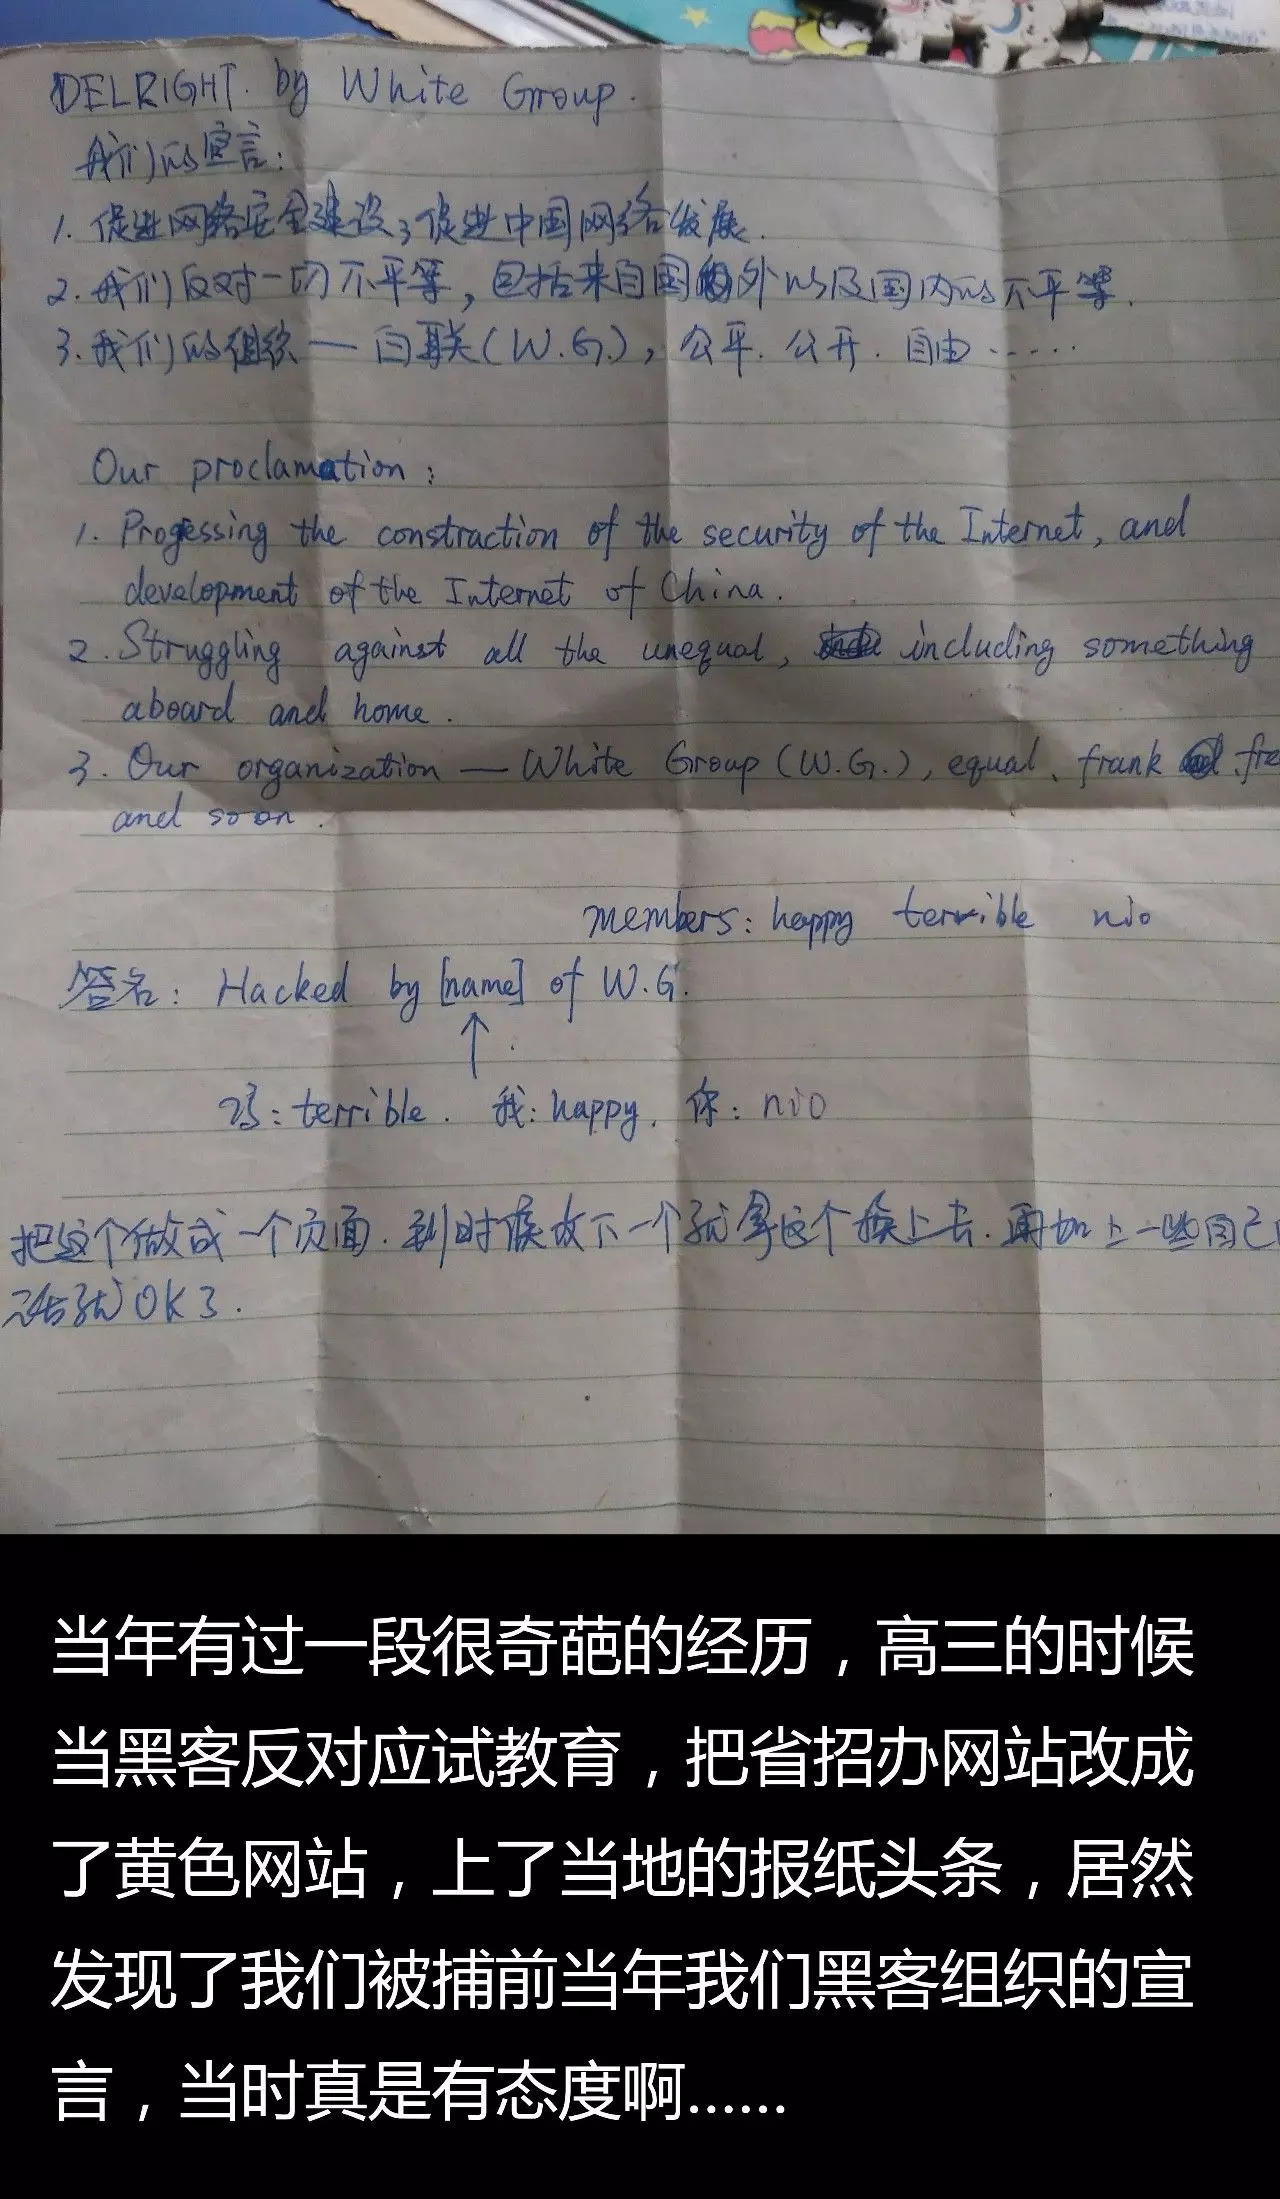 DELRIGHT. by White Group.
我们的宣言:
1. 促进网络安全建设,促进中国网络发展.
2. 我们反对一切不平等,包括来自国外以及国内的不平等.
3. 我们的组织—白联(W.G.), 公平. 公开. 自由......
Our proclamation:
1. Progessing the constraction of the security of the Internet, and
development of the Internet of China.
2. Struggling against all the unequal, including something
aboard and home.
3. Our organization — White Group (W.G.), equal、frank
and soon.
members: happy terrible nio
签名: Hacked by [name] of W.G.
冯: terrible. 我: happy. 你: nio
把这个做成一个页面. 到时候攻下一个就拿这个换上去. 再加上一些自己
话就OK了.
当年有过一段很奇葩的经历，高三的时候
当黑客反对应试教育，把省招办网站改成
了黄色网站，上了当地的报纸头条，居然
发现了我们被捕前当年我们黑客组织的宣
言，当时真是有态度啊......